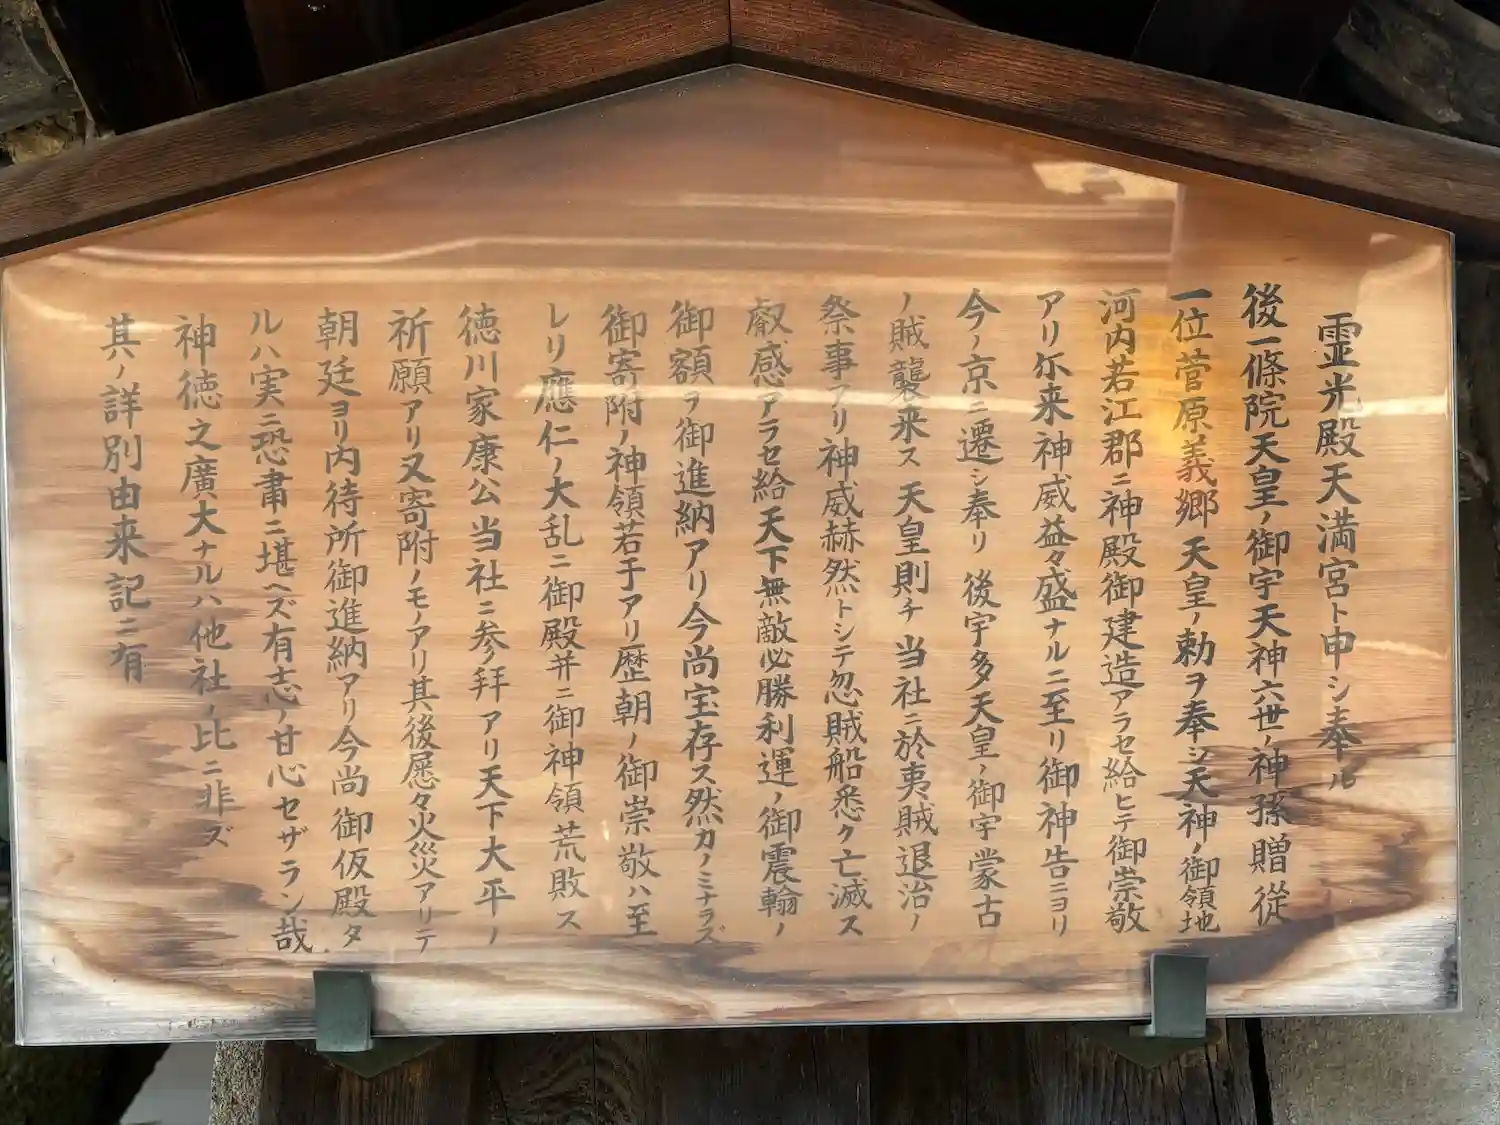 霊光殿天満宮ト申シ奉ル
後一條院天皇ノ御宇天神六世ノ神孫贈従
一位菅原義郷 天皇ノ勅ヲ奉シ天神ノ御領地
河内若江郡ニ神殿御建造アラセ給ヒテ御崇敬
アリ尓来神威益々盛ナルニ至リ御神告ニヨリ
今ノ京ニ遷シ奉リ 後宇多天皇ノ御宇蒙古
ノ賊襲来ス 天皇則チ 当社ニ於夷賊退治ノ
祭事アリ神威赫然トシテ忽賊船悉ク亡滅ス
叡感アラセ給天下無敵必勝利運ノ御震翰ノ
御額ヲ御進納アリ今尚宝存ス然カノミナラズ
御寄附ノ神領若干アリ歴朝ノ御崇敬ハ至
レリ應仁ノ大乱ニ御殿并ニ御神領荒敗ス
徳川家康公当社ニ参拝アリ天下大平ノ
祈願アリ又寄附ノモノアリ其後屡々火災アリテ
朝廷ヨリ内待所御進納アリ今尚御仮殿タ
ルハ実ニ恐粛ニ堪ヘズ有志ノ甘心セザラン哉
神徳之廣大ナルハ他社ノ比ニ非ズ
其ノ詳別由来記ニ有